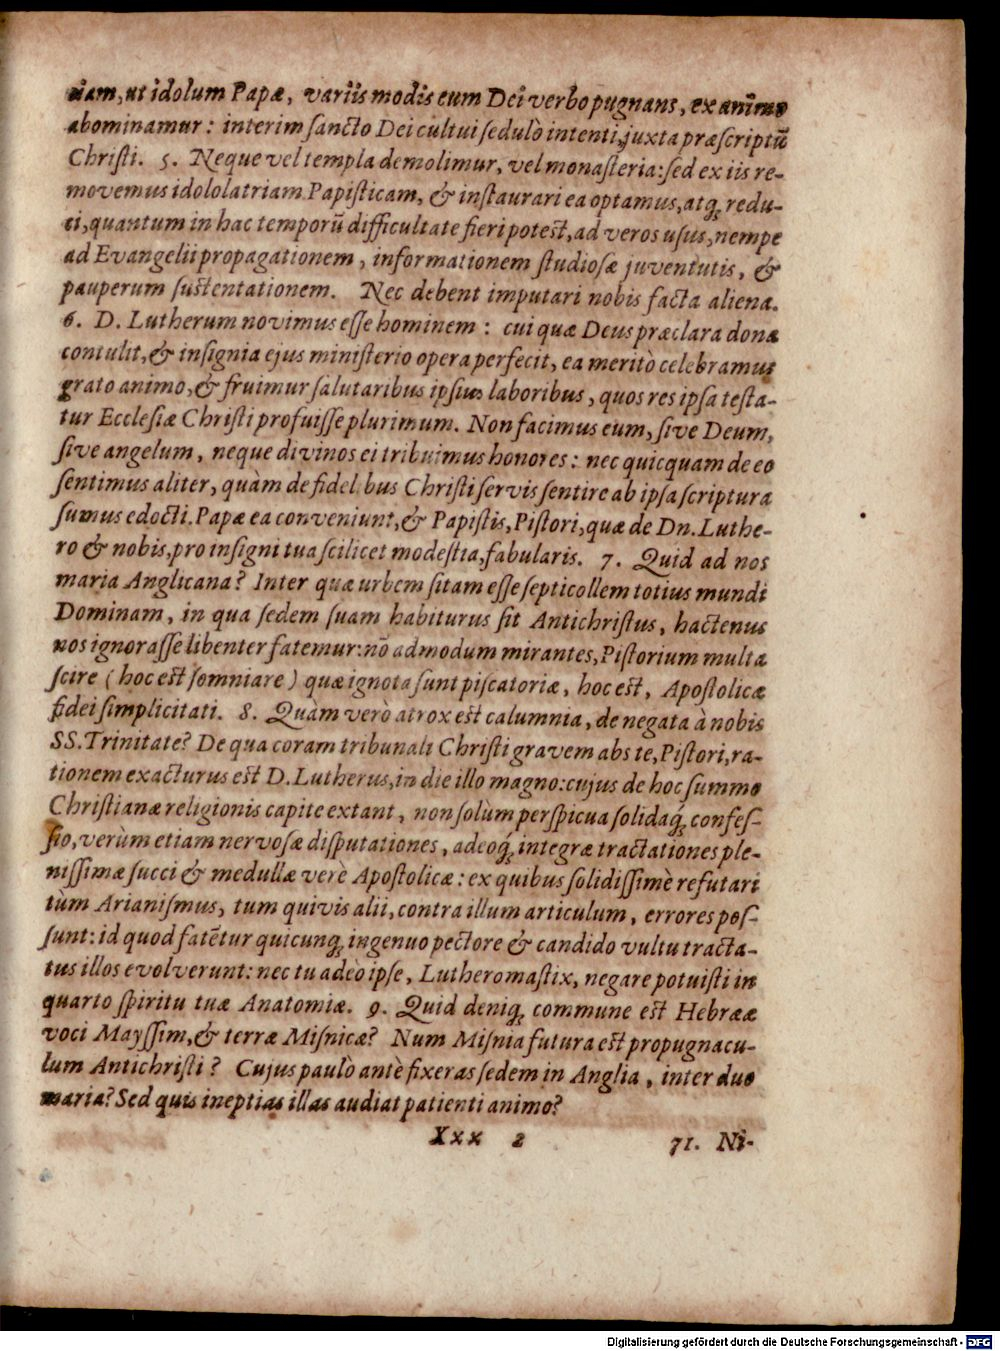 niam, ut idolum Papæ, variis modis cum Dei verbo pugnans, ex animo
abominamur: interim sancto Dei cultui sedulò intenti, juxta præscriptũ
Christi. 5. Neque vel templa demolimur, vel monasteria: sed ex iis re-
movemus idololatriam Papisticam, & instaurari ea optamus, atq; redu-
ci, quantum in hac temporũ difficultate fieri potest, ad veros usus, nempe
ad Evangelii propagationem, informationem studiosæ juventutis, &
pauperum sustentationem. Nec debent imputari nobis facta aliena.
6. D. Lutherum novimus esse hominem: cui quæ Deus præclara dona
contulit, & insignia ejus ministerio opera perfecit, ea meritò celebramus
grato animo, & fruimur salutaribus ipsius laboribus, quos res ipsa testa-
tur Ecclesiæ Christi profuisse plurimum. Non facimus eum, sive Deum,
sive angelum, neque divinos ei tribuimus honores: nec quicquam de eo
sentimus aliter, quàm de fidelibus Christi servis sentire ab ipsa scriptura
sumus edocti. Papæ ea conveniunt, & Papistis, Pistori, quæ de Dn. Luthe-
ro & nobis, pro insigni tua scilicet modestia, fabularis. 7. Quid ad nos
maria Anglicana? Inter quæ urbem sitam esse septicollem totius mundi
Dominam, in qua sedem suam habiturus sit Antichristus, hactenus
nos ignorasse libenter fatemur: nõ admodum mirantes, Pistorium multa
scire (hoc est somniare) quæ ignota sunt piscatoriæ, hoc est, Apostolicæ
fidei simplicitati. 8. Quàm verò atrox est calumnia, de negata à nobis
SS. Trinitate? De qua coram tribunali Christi gravem abs te, Pistori, ra-
tionem exacturus est D. Lutherus, in die illo magno: cujus de hoc summo
Christianæ religionis capite extant, non solùm perspicua solidaq́; confes-
sio, verùm etiam nervosæ disputationes, adeoq́; integræ tractationes ple-
nissimæ succi & medullæ verè Apostolicæ: ex quibus solidissimè refutari
tum Arianismus, tum quivis alii, contra illum articulum, errores pos-
sunt: id quod fatẽtur quicunq; ingenuo pectore & candido vultu tracta-
tus illos evolverunt: nec tu adeò ipse, Lutheromastix, negare potuisti in
quarto spiritu tuæ Anatomiæ. 9. Quid deniq; commune est Hebrææ
voci Mayssim, & terræ Misnicæ? Num Misnia futura est propugnacu-
lum Antichristi? Cujus paulò antè fixeras sedem in Anglia, inter duo
maria? Sed quis ineptias illas audiat patienti animo?
Xxx 2 71. Ni-
Digitalisierung gefördert durch die Deutsche Forschungsgemeinschaft - DFG